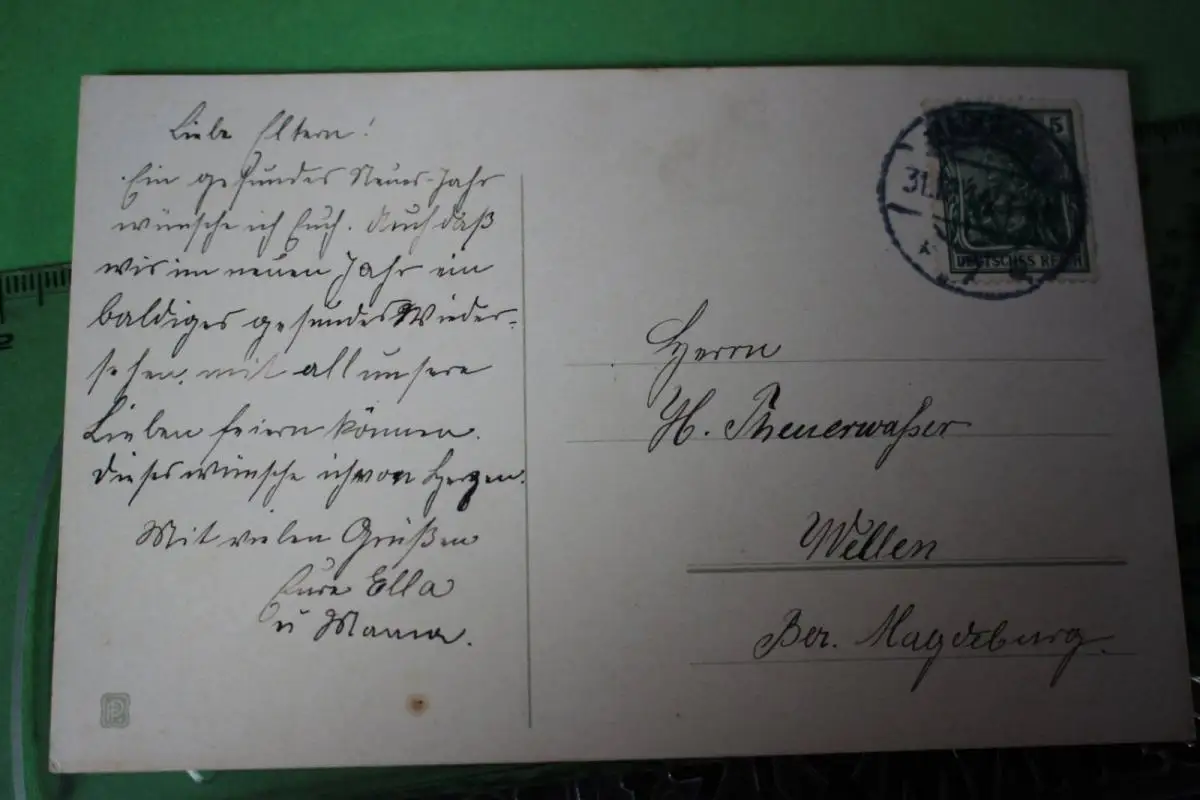 Liebe Eltern!
Ein gesundes Neues Jahr
wünsche ich Euch. Auch daß
wir im neuen Jahr ein
baldiges gesundes Wieder-
sehen, mit all unsere
Lieben feiern können.
Dieses wünsche ich von Herzen.
Mit vielen Grüßen
Eure Ella
u Mama.
5
31.
DEUTSCHES REICH
Herrn
H. Theuerwasser
Wellen
Bez. Magdeburg.
2